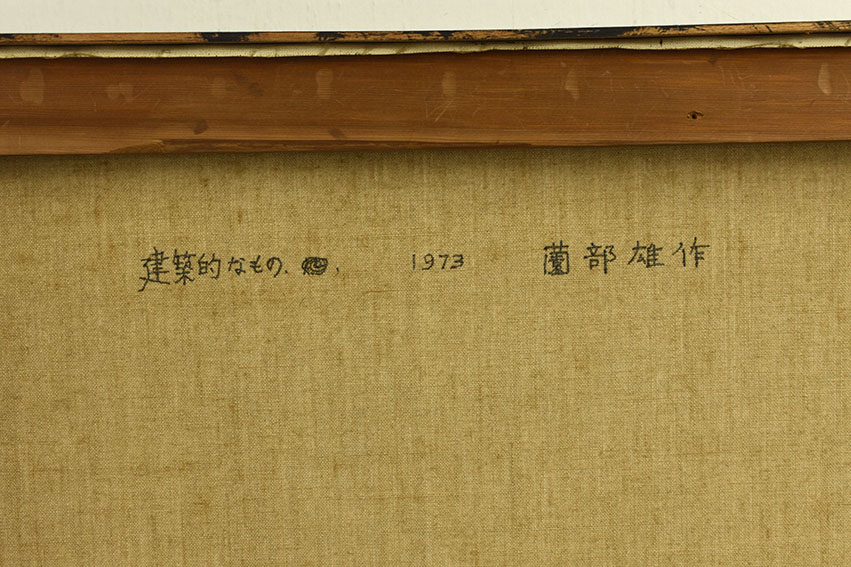 建築的なもの. 1973 薗部雄作